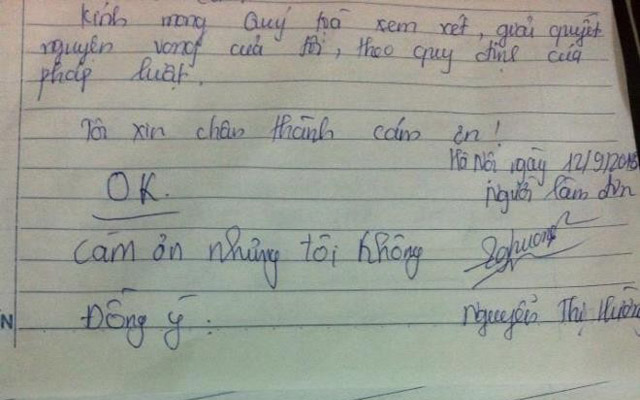 Kính mong Quý toà xem xét, giải quyết
nguyện vọng của tôi, theo quy định của
pháp luật.
Tôi xin chân thành cảm ơn!
Hà Nội ngày 12/9/2013
Người làm đơn
OK.
Cảm ơn nhưng tôi không
Đồng ý.
Nguyễn Thị Hường
N